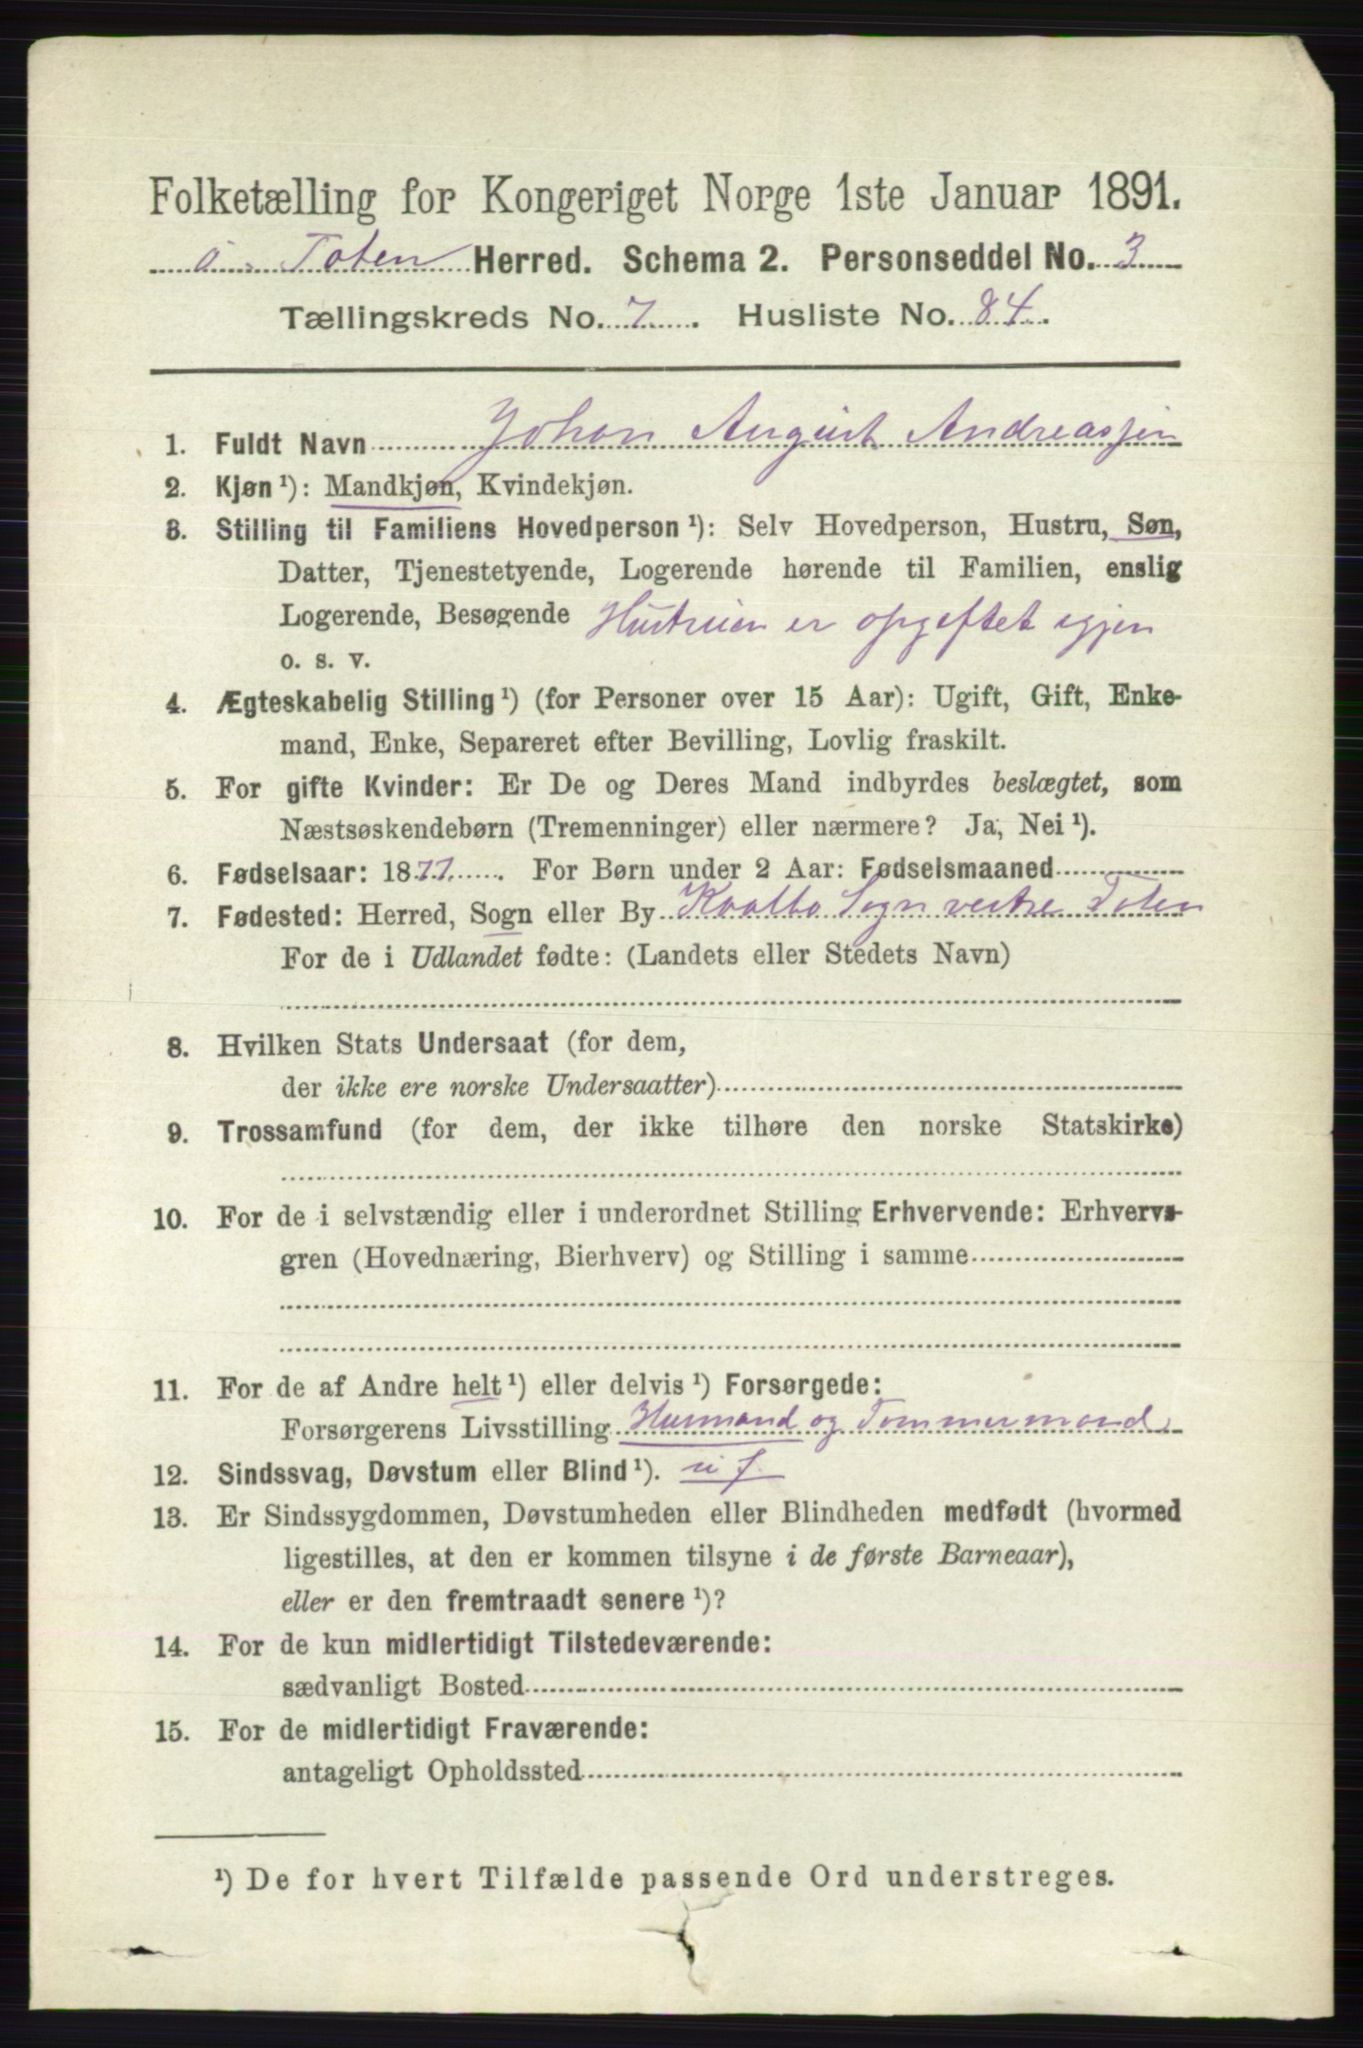 Folketælling for Kongeriget Norge 1ste Januar 1891.
Ø. Toten Herred. Schema 2. Personseddel No. 3
Tællingskreds No. 7. Husliste No. 84.
1. Fuldt Navn Johan August Andreassen
2. Kjøn ¹): Mandkjøn, Kvindekjøn.
3. Stilling til Familiens Hovedperson ¹): Selv Hovedperson, Hustru, Søn,
Datter, Tjenestetyende, Logerende hørende til Familien, enslig
Logerende, Besøgende Hustruen er opgeftet igjen
o. s. v.
4. Ægteskabelig Stilling ¹) (for Personer over 15 Aar): Ugift, Gift, Enke-
mand, Enke, Separeret efter Bevilling, Lovlig fraskilt.
5. For gifte Kvinder: Er De og Deres Mand indbyrdes beslægtet, som
Næstsøskendebørn (Tremenninger) eller nærmere? Ja, Nei ¹).
6. Fødselsaar: 1877. For Børn under 2 Aar: Fødselsmaaned
7. Fødested: Herred, Sogn eller By Kolbo Sogn vestre Toten
For de i Udlandet fødte: (Landets eller Stedets Navn)
8. Hvilken Stats Undersaat (for dem,
der ikke ere norske Undersaatter)
9. Trossamfund (for dem, der ikke tilhøre den norske Statskirke)
10. For de i selvstændig eller i underordnet Stilling Erhvervende: Erhvervs-
gren (Hovednæring, Bierhverv) og Stilling i samme
11. For de af Andre helt ¹) eller delvis ¹) Forsørgede:
Forsørgerens Livsstilling Husmand og Tømmermand
12. Sindssvag, Døvstum eller Blind ¹).
13. Er Sindssygdommen, Døvstumheden eller Blindheden medfødt (hvormed
ligestilles, at den er kommen tilsyne i de første Barneaar),
eller er den fremtraadt senere ¹)?
14. For de kun midlertidigt Tilstedeværende:
sædvanligt Bosted
15. For de midlertidigt Fraværende:
antageligt Opholdssted
¹) De for hvert Tilfælde passende Ord understreges.